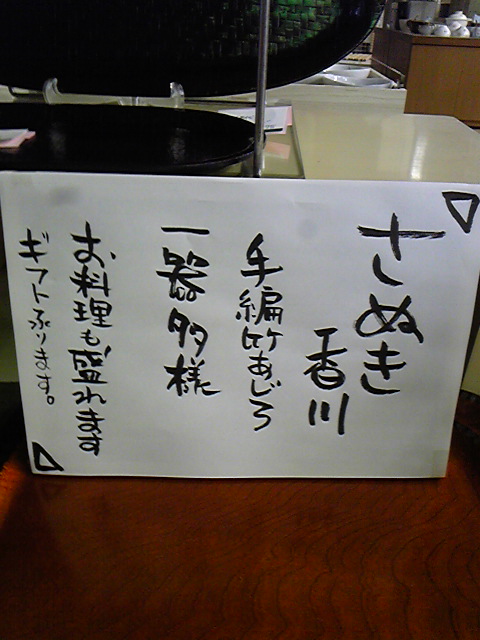 さぬき
香川
手編竹あじろ
一器多様
お料理も盛れます
ギフト承ります。